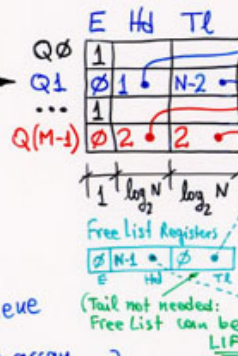 E Hd Tl
QØ 1
Q1 Ø 1 N-2
... 1
Q(M-1) Ø 2 2
1 log₂N log₂N
Free List Registers
Ø N-1 Ø
E Hd Tl
(Tail not needed:
eue Free List can be
LIF